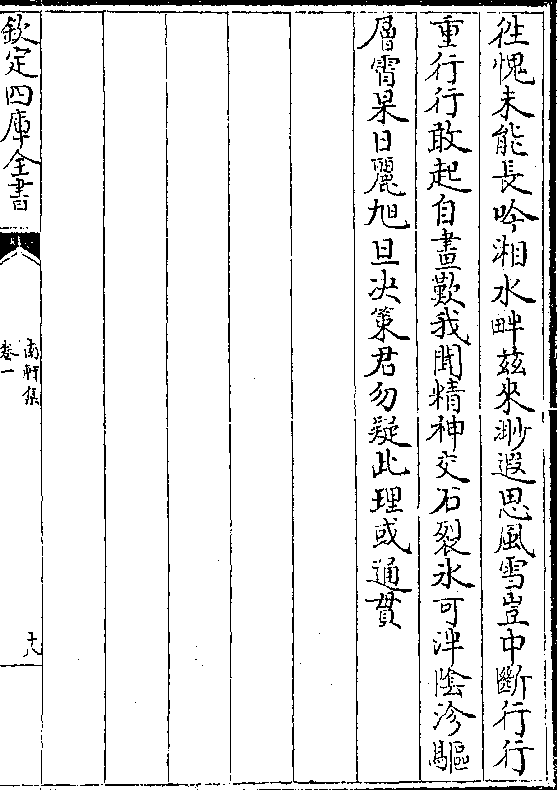 徃愧未能長吟湘水畔兹來渺遐思風雪豈中斷行行
重行行敢起自畫歎我聞精神交石裂氷可泮陰沴驅
層霄杲日麗旭旦决策君勿疑此理或通貫
欽定四庫全書
南軒集
卷一
十八